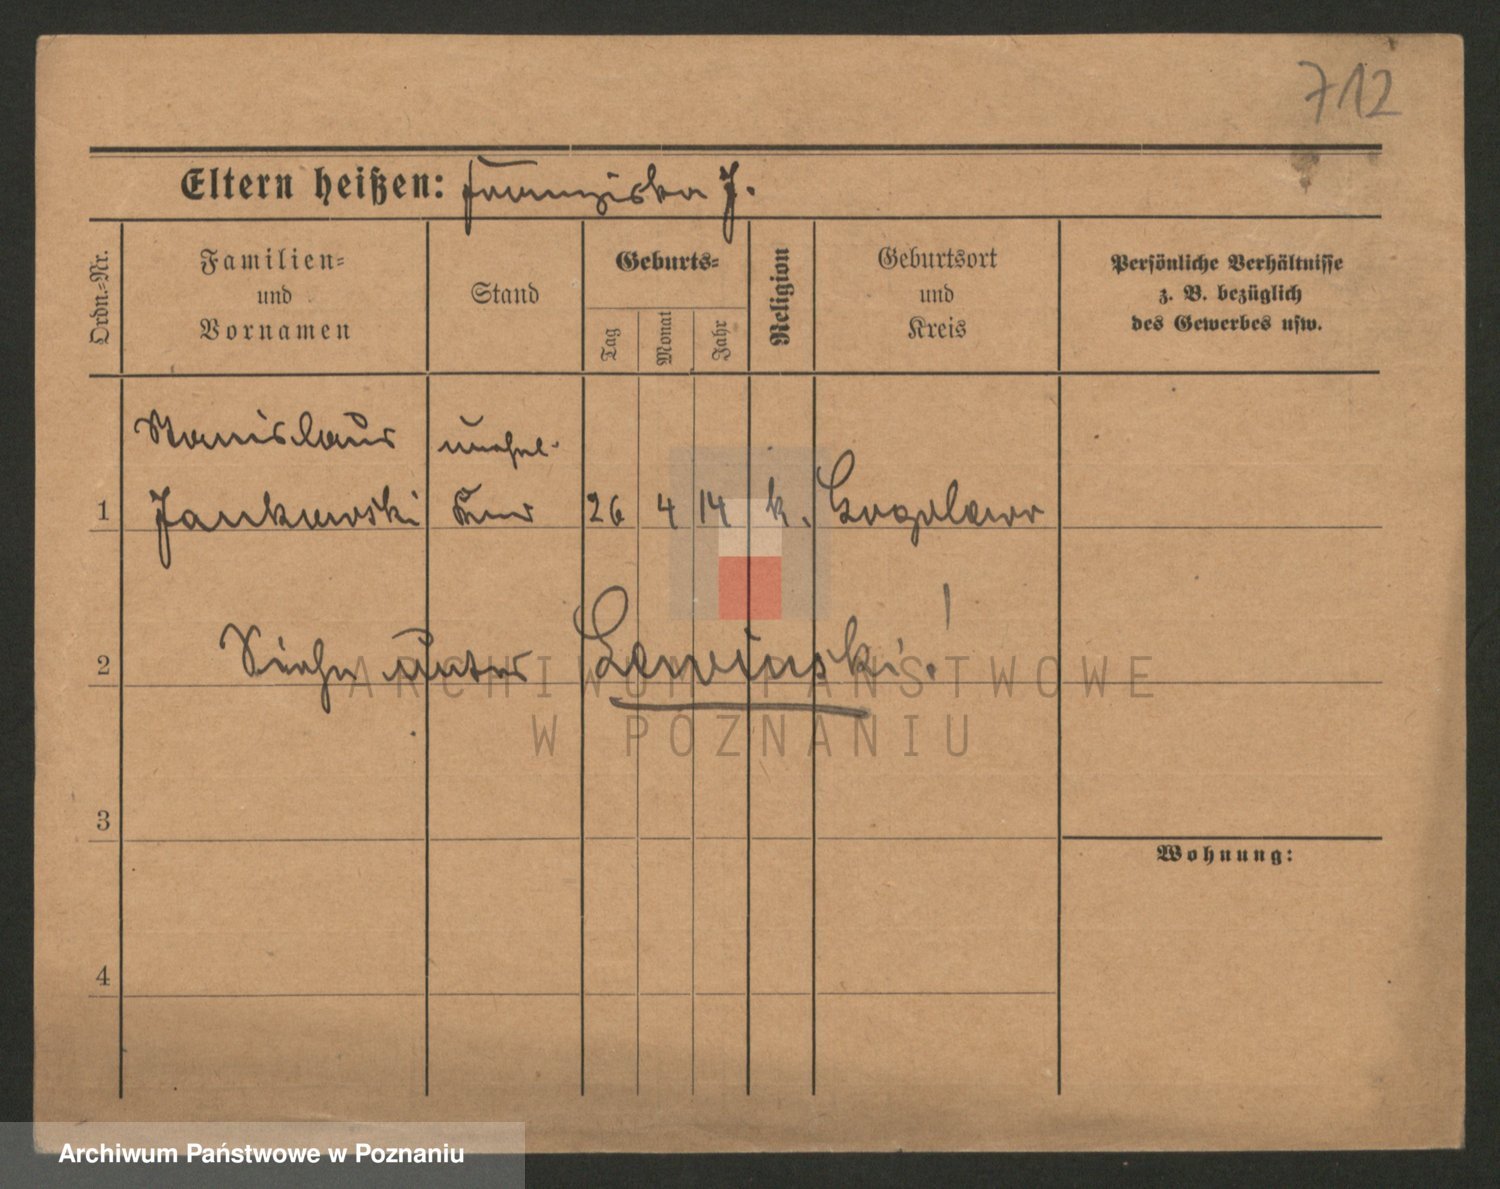 712
Eltern heißen: Franziska J.
Ordn.-Nr.
Familien-
und
Vornamen
Stand
Geburts-
Tag
Monat
Jahr
Religion
Geburtsort
und
Kreis
Persönliche Verhältnisse
z. B. bezüglich
des Gewerbes usw.
Stanislaus unehel.
1 Jankowski 26 4 14 k.
2 Siehe unter Lewinski!
3
Wohnung:
4
ARCHIWUM PAŃSTWOWE
W POZNANIU
Archiwum Państwowe w Poznaniu